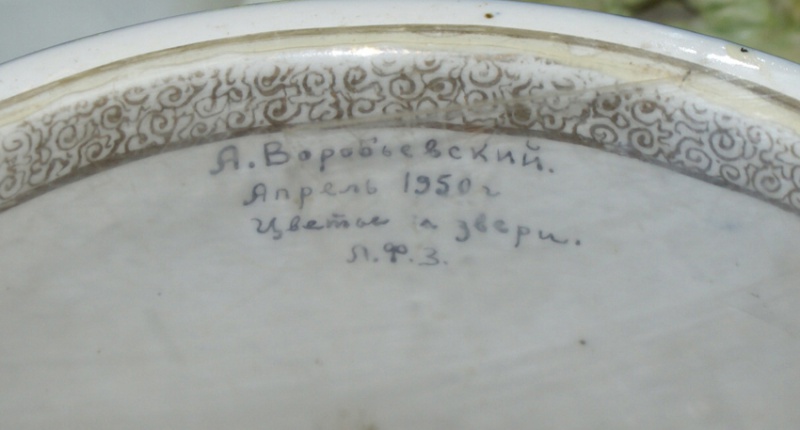 А. Воробьевский.
Апрель 1950 г
Цветы и звери.
Л.Ф.З.